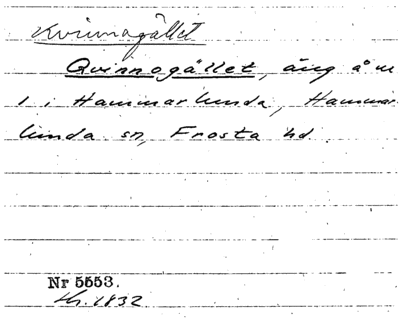 Kvinnagället
Qvinnogället, äng å nr
1 i Hammarlunda, Hammar
lunda sn, Frosta hd.
Nr 5553.
1832